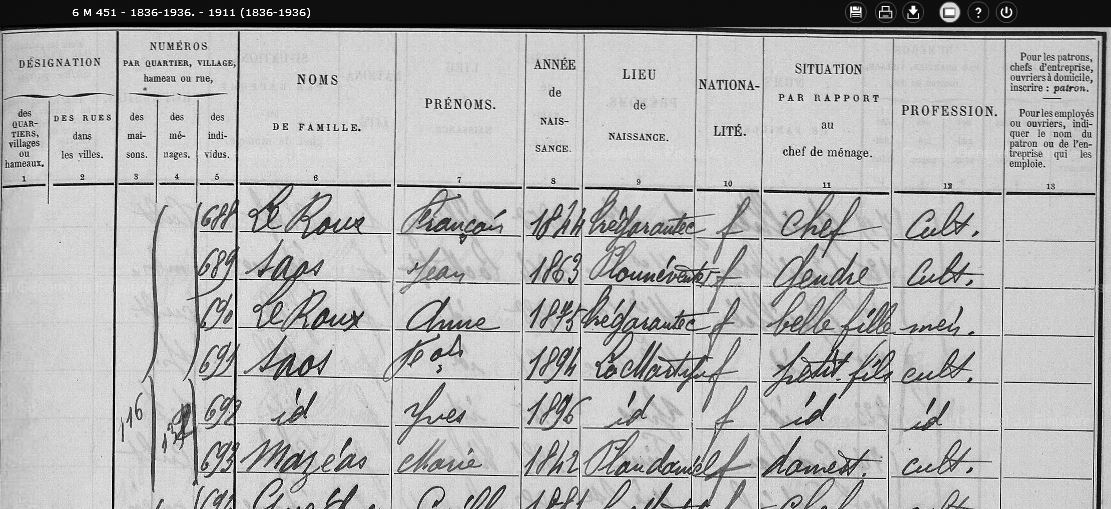 6 M 451 - 1836-1936. - 1911 (1836-1936)
DÉSIGNATION
des QUAR-TIERS, villages ou hameaux.
DES RUES dans les villes.
NUMÉROS PAR QUARTIER, VILLAGE, hameau ou rue,
des mai-sons.
des mé-nages.
des indi-vidus.
NOMS DE FAMILLE.
PRÉNOMS.
ANNÉE de NAIS-SANCE.
LIEU de NAISSANCE.
NATIONA-LITÉ.
SITUATION PAR RAPPORT au chef de ménage.
PROFESSION.
Pour les patrons, chefs d'entreprise, ouvriers à domicile, inscrire : patron.
Pour les employés ou ouvriers, indi-quer le nom du patron ou de l'en-treprise qui les emploie.
1 2 3 4 5 6 7 8 9 10 11 12 13
688 Le Roux François 1844 Trégarantec f chef Cult.
689 Saos Jean 1863 f Gendre Cult.
690 Le Roux Anne 1875 Trégarantec f belle fille mén.
691 Saos Fçois 1894 f petit-fils cult.
116 692 id Yves 1896 id f id id
693 Mazéas Marie 1842 Ploudaniel f domest. cult.